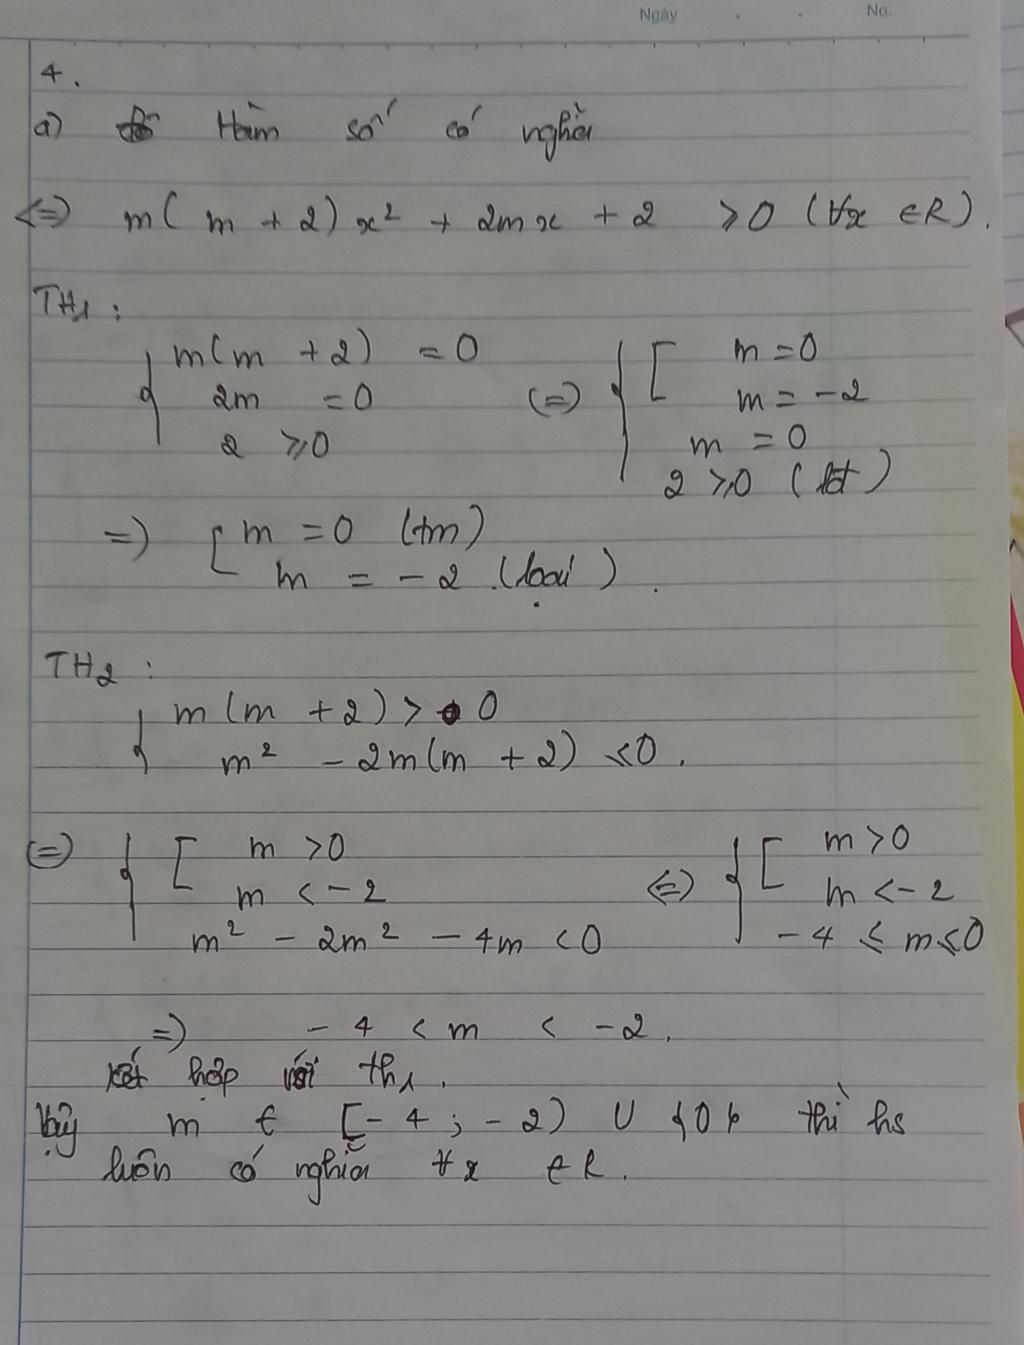 Ngày . . No.
4.
a) Hàm số có nghĩa
<=> m( m + 2) x² + 2mx + 2 ⩾0 (∀x ∈R).
TH1 :
{ m(m + 2) = 0 (=) { [ m = 0
2m = 0 m = -2
2 ⩾0 m = 0
2 ⩾0 (lđ)
=) [ m = 0 (tm)
m = -2 (loại) .
TH2 :
{ m (m + 2) > 0
m² - 2m(m + 2) ⩽0 .
(=) { [ m >0 (=) { [ m >0
m < -2 m < -2
m² - 2m² - 4m <0 -4 ⩽ m ⩽0
=) -4 < m < -2 .
kết hợp với th1 .
Vậy m ∈ [-4 ; -2) U {0} thì hs
luôn có nghĩa ∀x ∈ R.